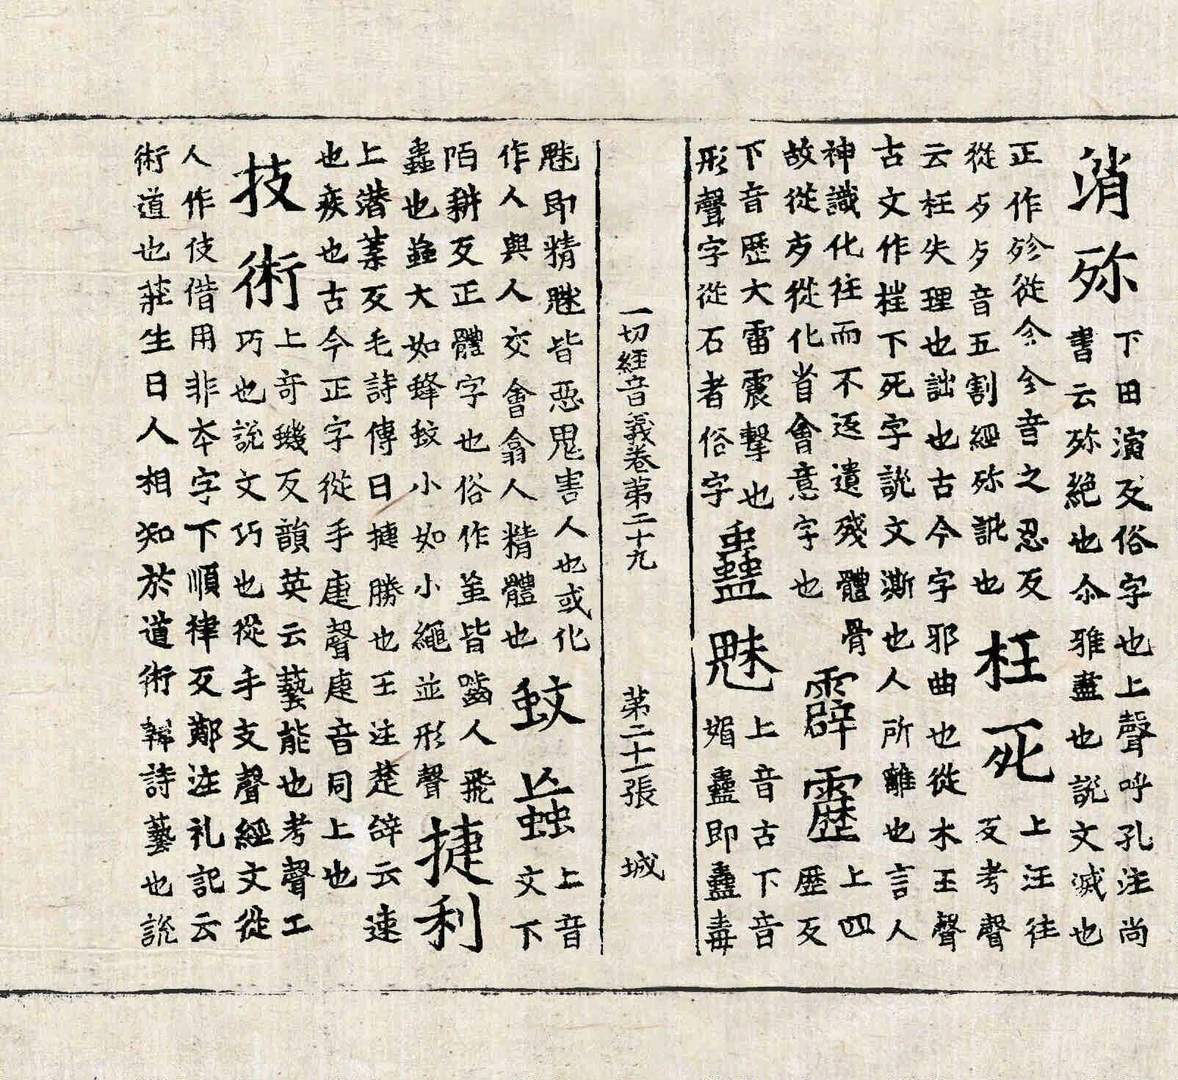 消殄
下田演反俗字也上聲呼孔注尚
書云殄絕也尒雅盡也說文滅也
正作殄從㐱㐱音之忍反
從歺歺音五割經殄訛也
枉死
上汪往
反考聲
云枉失理也詘也古今字邪曲也從木王聲
古文作㭹下死字說文澌也人所離也言人
神識化往而不返遺殘體骨
故從歺從化省會意字也
霹靂
上四
歷反
下音歷大雷震擊也
形聲字從石者俗字
蠱魅
上音古下音
媚蠱即蠱毒
一切經音義卷第二十九 第二十一張 城
魅即精魅皆惡鬼害人也或化
作人與人交會翕人精體也
蚊蝱
上音
文下
陌耕反正體字也俗作䖟皆嚙人飛
蟲也䖟大如蜂蚊小如小蠅並形聲
捷利
上潛葉反毛詩傳曰捷勝也王注楚辝云速
也疾也古今正字從手疌聲疌音同上也
技術
上奇蟣反韻英云藝能也考聲工
巧也說文巧也從手支聲經文從
人作伎借用非本字下順律反鄭注礼記云
術道也莊生曰人相知於道術韓詩藝也說